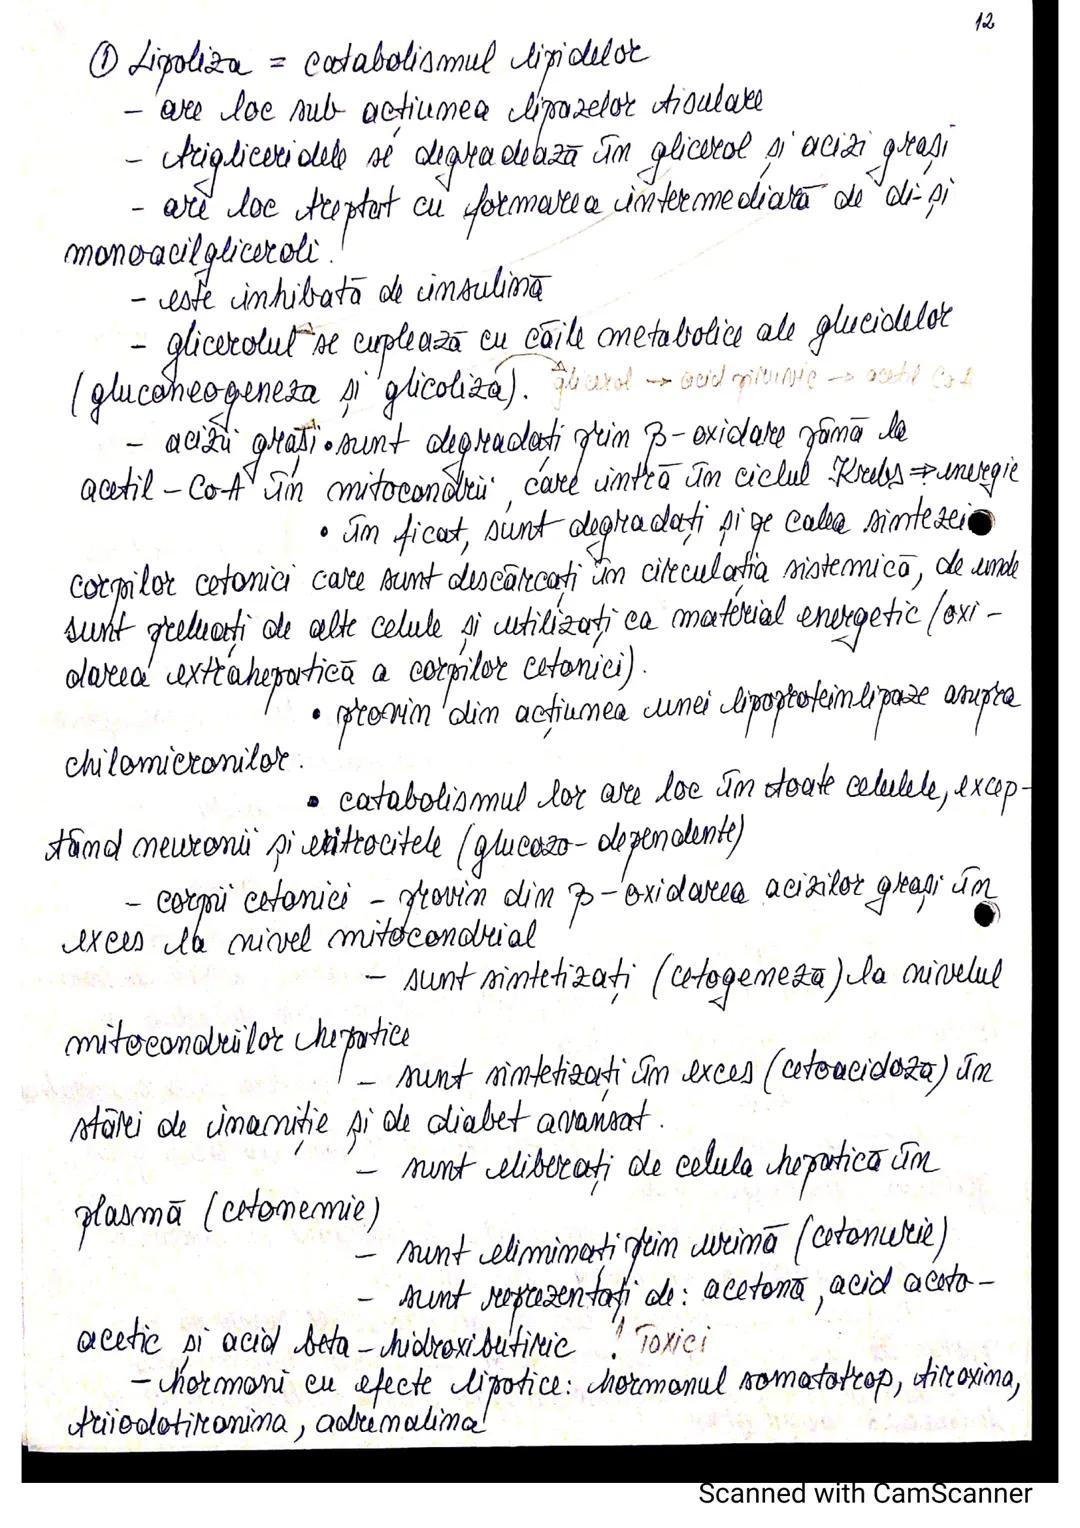 12
① Lipoliza = catabolismul lipidelor
- are loc sub acțiunea lipazelor tisulare
- trigliceridele se degradează în glicerol și acizi grași
- are loc treptat cu formarea intermediară de di- și
monoacilgliceroli.
- este inhibată de insulină
- glicerolul se cuplează cu căile metabolice ale glucidelor
(gluconeogeneza și glicoliza). glicerol → acid piruvic → acetil CoA
- acizii grași • sunt degradați prin β-oxidare până la
acetil-Co-A în mitocondrii, care intră în ciclul Krebs ⇒ energie
• în ficat, sunt degradați și pe calea sintezei
corpilor cetonici care sunt descărcați în circulația sistemică, de unde
sunt preluați de alte celule și utilizați ca material energetic (oxi-
darea extrahepatică a corpilor cetonici).
• provin din acțiunea unei lipoproteinlipaze asupra
chilomicronilor.
• catabolismul lor are loc în toate celulele, excep-
tând neuronii și eritrocitele (glucozo-dependente)
- corpii cetonici - provin din β-oxidarea acizilor grași în
exces la nivel mitocondrial
- sunt sintetizați (cetogeneza) la nivelul
mitocondriilor hepatice
- sunt sintetizați în exces (cetoacidoza) în
stări de inaniție și de diabet avansat.
- sunt eliberați de celula hepatică în
plasmă (cetonemie)
- sunt eliminați prin urină (cetonurie)
- sunt reprezentați de: acetonă, acid aceto-
acetic și acid beta-hidroxibutiric ! Toxici
- hormoni cu efecte lipotice: hormonul somatotrop, tiroxina,
triiodotironina, adrenalina
Scanned with CamScanner